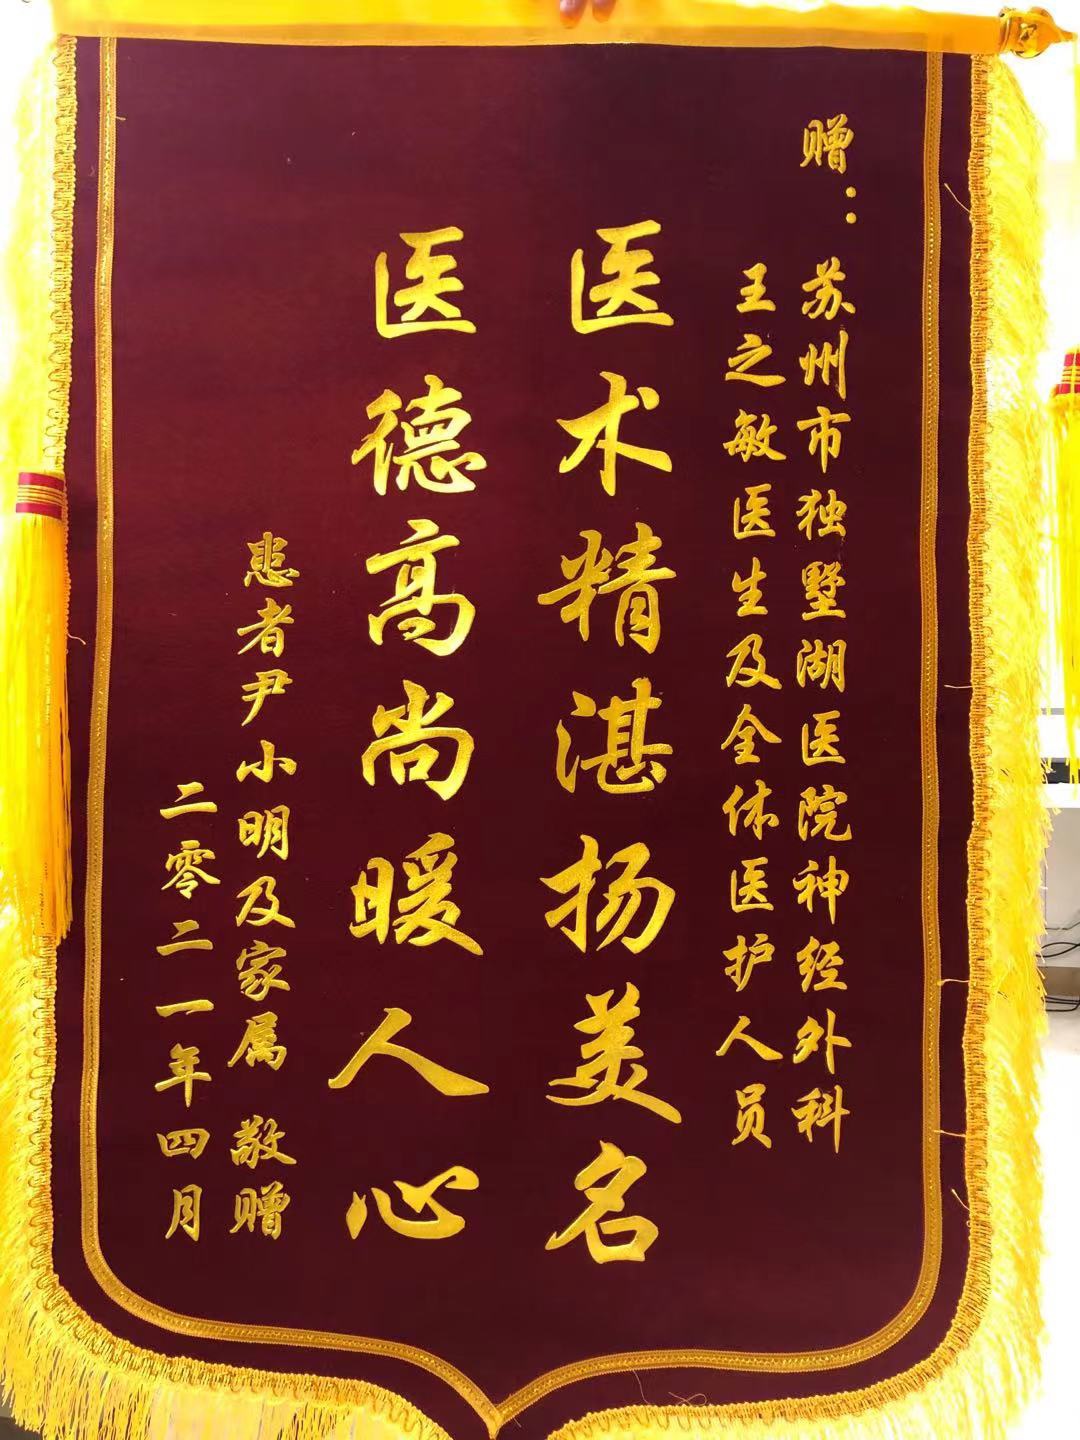 赠：苏州市独墅湖医院神经外科
王之敏医生及全体医护人员
医术精湛扬美名
医德高尚暖人心
患者尹小明及家属 敬赠
二零二一年四月